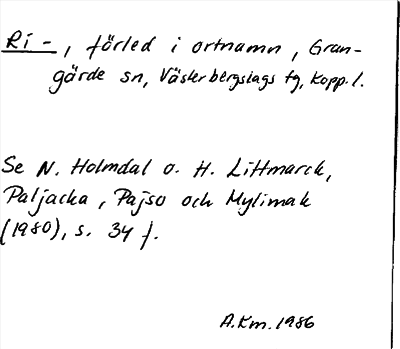 Ri-, förled i ortnamn, Gran-
gärde sn, Västerbergslags tg, Kopp. l.
Se N. Holmdal o. H. Littmarck,
Paljacka, Pajso och Mylimak
(1980), s. 34 f.
A.Km. 1986